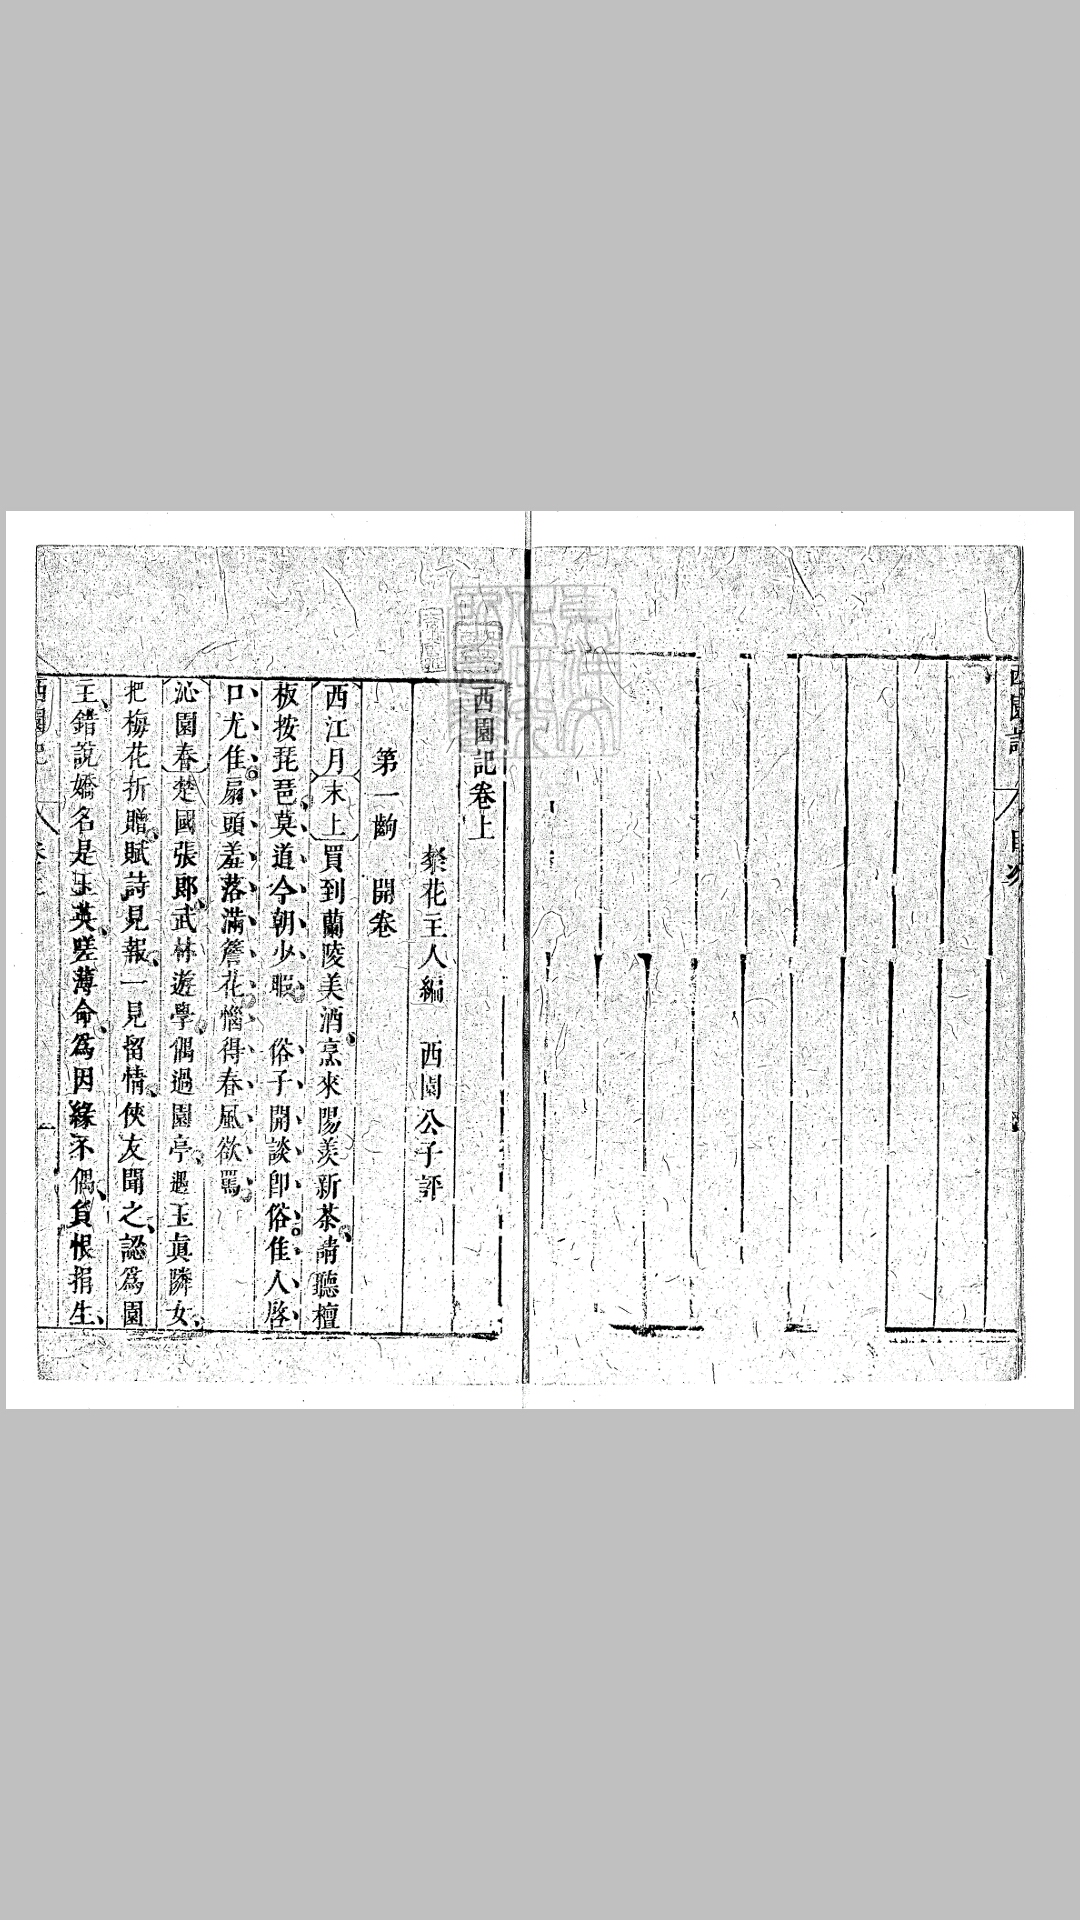 西園記 目次
西園記卷上
粲花主人編 西園公子評
第一齣 開卷
西江月 末上 買到蘭陵美酒烹來陽羨新茶請聽檀
板按琵琶莫道今朝少暇 俗子開談即俗佳人啓
口尤佳扇頭羞落滿簷花惱得春風欲罵
沁園春 楚國張郎武林遊學偶過園亭遇玉眞隣女
把梅花折贈賦詩見報一見留情俠友聞之認爲園
主錯說嬌名是玉英嗟薄命爲因緣不偶負恨捐生
西園記